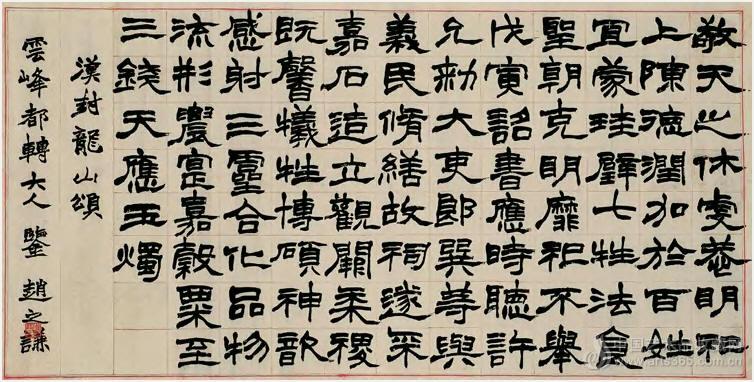 敬天之休虔恭明祀
上陳德潤加於百姓
宜蒙珪璧七牲法食
聖朝克明靡祀不舉
戊寅詔書應時聽許
允勑大吏郎巽等與
義民脩繕故祠遂采
嘉石造立觀闕黍稷
既馨犧牲博碩神歆
感射三靈合化品物
流形農寔嘉穀粟至
三錢天應玉燭
漢封龍山頌
雲峰都轉大人鑒 趙之謙
www.arts365.com.cn